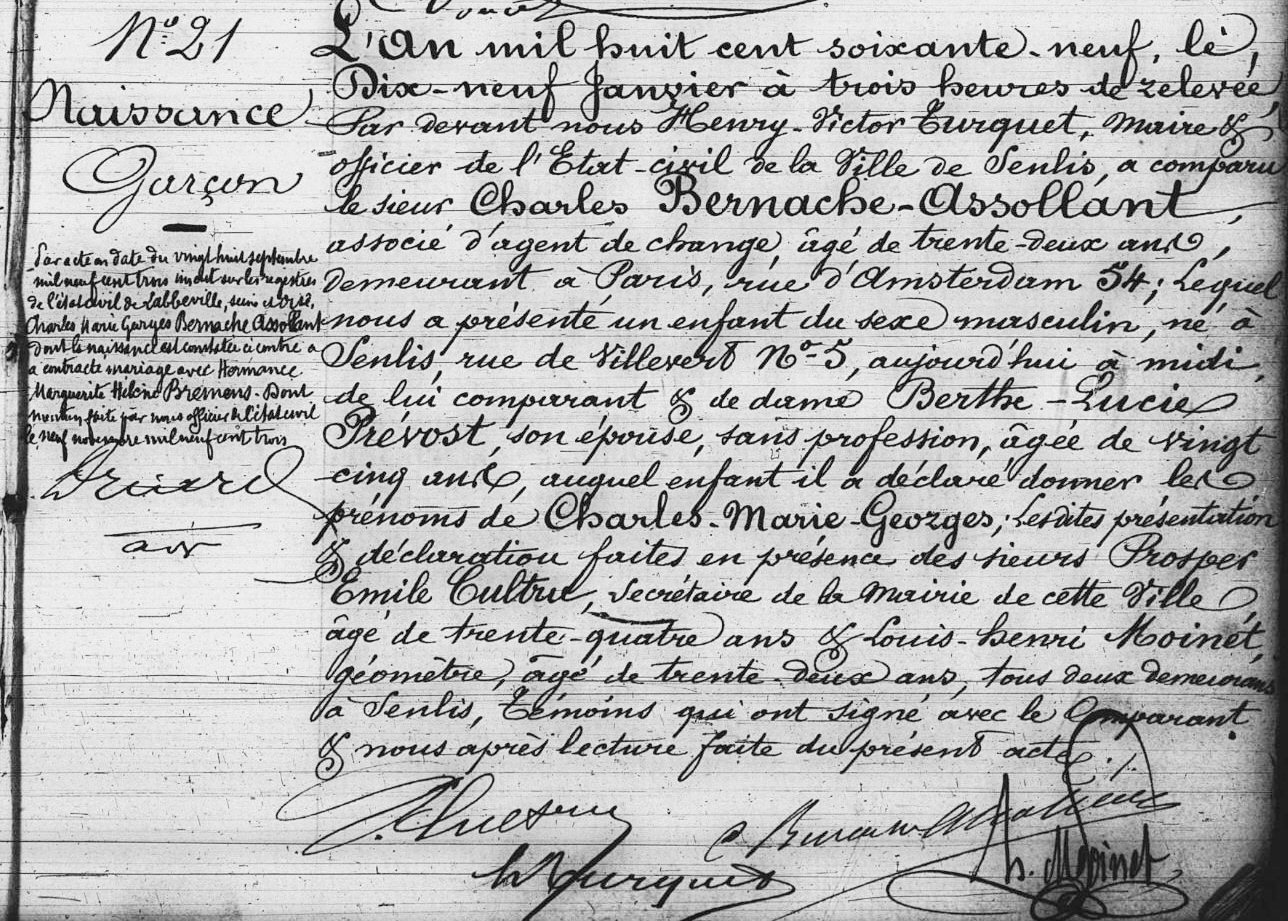 N° 21
Naissance
Garçon
Par acte en date du vingt huit septembre
mil neuf cent trois inscrit sur les registres
de l'état civil de Labbeville, seine et oise,
Charles Marie Georges Bernache Assollant
dont la naissance est constatée ci contre a
a contracté mariage avec Hermance
Marguerite Helène Bremens. Dont
mention faite par nous officier de l'état civil
le neuf novembre mil neuf cent trois
L'An mil huit cent soixante-neuf, le
Dix-neuf Janvier à trois heures de relevée,
Par devant nous Henry-Victor Turquet, Maire &
officier de l'Etat-civil de la Ville de Senlis, a comparu
le sieur Charles Bernache-Assollant,
associé d'agent de change, âgé de trente-deux ans,
demeurant à Paris, rue d'Amsterdam 54; Lequel
nous a présenté un enfant du sexe masculin, né à
Senlis, rue de Villevert N° 5, aujourd'hui à midi,
de lui comparant & de dame Berthe-Lucie
Prévost, son épouse, sans profession, âgée de vingt
cinq ans, auquel enfant il a déclaré donner les
prénoms de Charles-Marie-Georges; Lesdites présentation
& déclaration faites en présence des sieurs Prosper
Emile Cultru, secrétaire de la Mairie de cette Ville
âgé de trente-quatre ans & Louis-henri Moinet,
géomètre, âgé de trente-deux ans, tous deux demeurans
à Senlis, Témoins qui ont signé avec le Comparant
& nous après lecture faite du présent acte ./.
h. Moinet
h Turquet